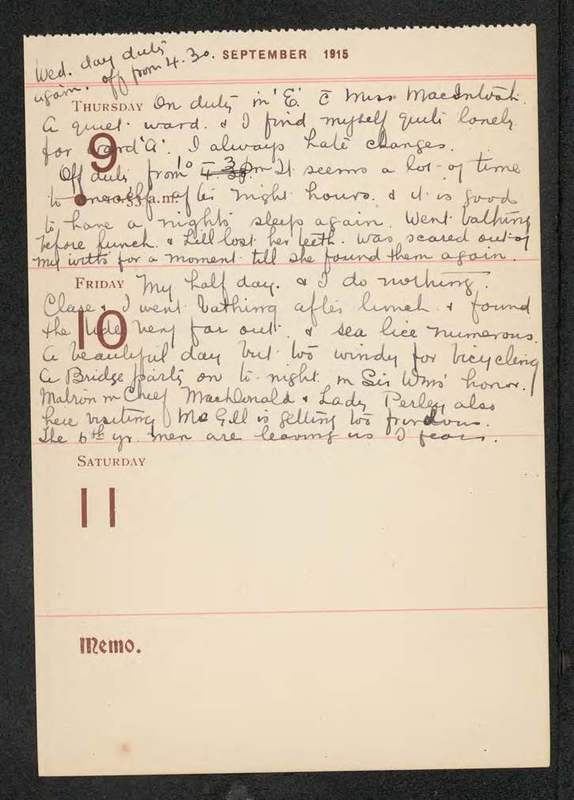 Wed. day duty
again. off from 4.30.
SEPTEMBER 1915
THURSDAY On duty in 'E' c̄ Miss MacIntosh.
A quiet ward. & I find myself quite lonely
for ward 'A'. I always hate changes.
9
Off duty from 10 – 3 pm It seems a lot of time
33 a.m.
to after night hours. & it is good
to have a nights sleep again. Went bathing
before lunch. & Lill lost her teeth. was scared out of
my witts for a moment till she found them again.
FRIDAY My half day. & I do nothing.
Clare & I went bathing after lunch & found
the tide very far out. & sea lice numerous.
10
A beautiful day but too windy for bicycling
A Bridge party on to-night in Sir Wms' honor.
Matron in Chief MacDonald & Lady Perley also
here visiting Mc Gill is getting too
The 5th yr. men are leaving us I fear.
SATURDAY
11
Memo.